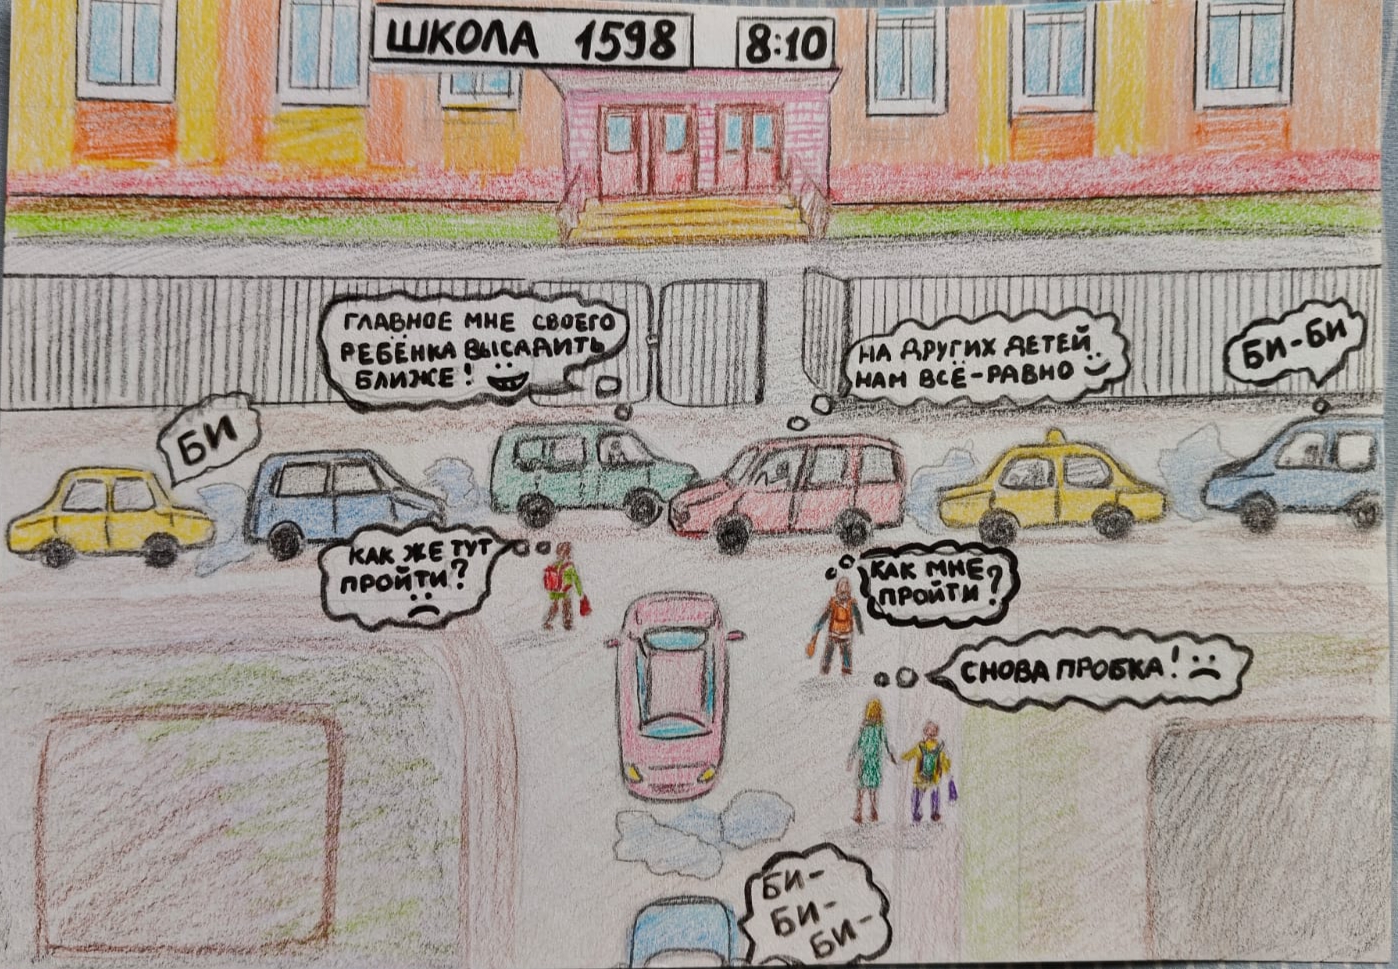 ШКОЛА 1598 8:10
ГЛАВНОЕ МНЕ СВОЕГО
РЕБЁНКА ВЫСАДИТЬ
БЛИЖЕ!
НА ДРУГИХ ДЕТЕЙ
НАМ ВСЁ-РАВНО
БИ-БИ
БИ
КАК ЖЕ ТУТ
ПРОЙТИ?
КАК МНЕ
ПРОЙТИ?
СНОВА ПРОБКА!
БИ-
БИ-
БИ-